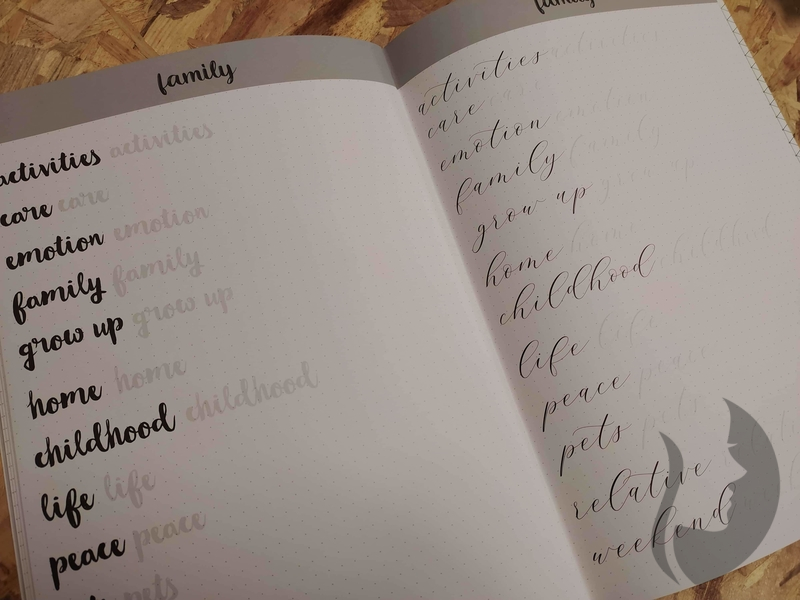 family
activities activities
care care
emotion emotion
family family
grow up grow up
home home
childhood childhood
life life
peace peace
pets
family
activities activities
care care
emotion emotion
family family
grow up grow up
home home
childhood childhood
life life
peace peace
pets pets
relative
weekend